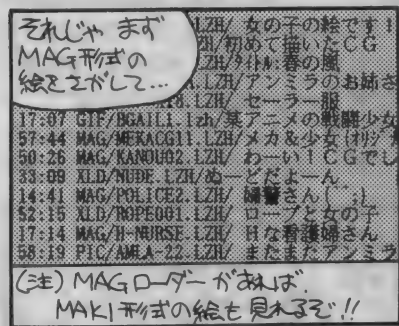 それじゃ まず
MAG形式の
絵をさがして…
.LZH/ 女の子の絵です!
LZH/初めて描いたCG
LZH/ﾀｲﾄﾙ:春の風
LZH/アンミラのお姉さ
8.LZH/ セーラー服
17:07 GIF/BGAIL1.lzh/某アニメの戦闘少女
57:44 MAG/MEKACG11.LZH/メカ&少女(ｵﾘｼﾞ
50:26 MAG/KANOU02.LZH/ わーい!CGでし
33:09 XLD/NUDE.LZH/ぬーどだよーん
14:41 MAG/POLICE2.LZH/ 婦警さん(^_^;)
52:15 XLD/ROPE001.LZH/ ロープと女の子
17:14 MAG/H-NURSE.LZH/ Hな看護婦さん
58:19 PIC/AMLA_22.LZH/ またまたアンミラ
(注) MAGローダーがあれば、
MAKI形式の絵も見れるぞ!!